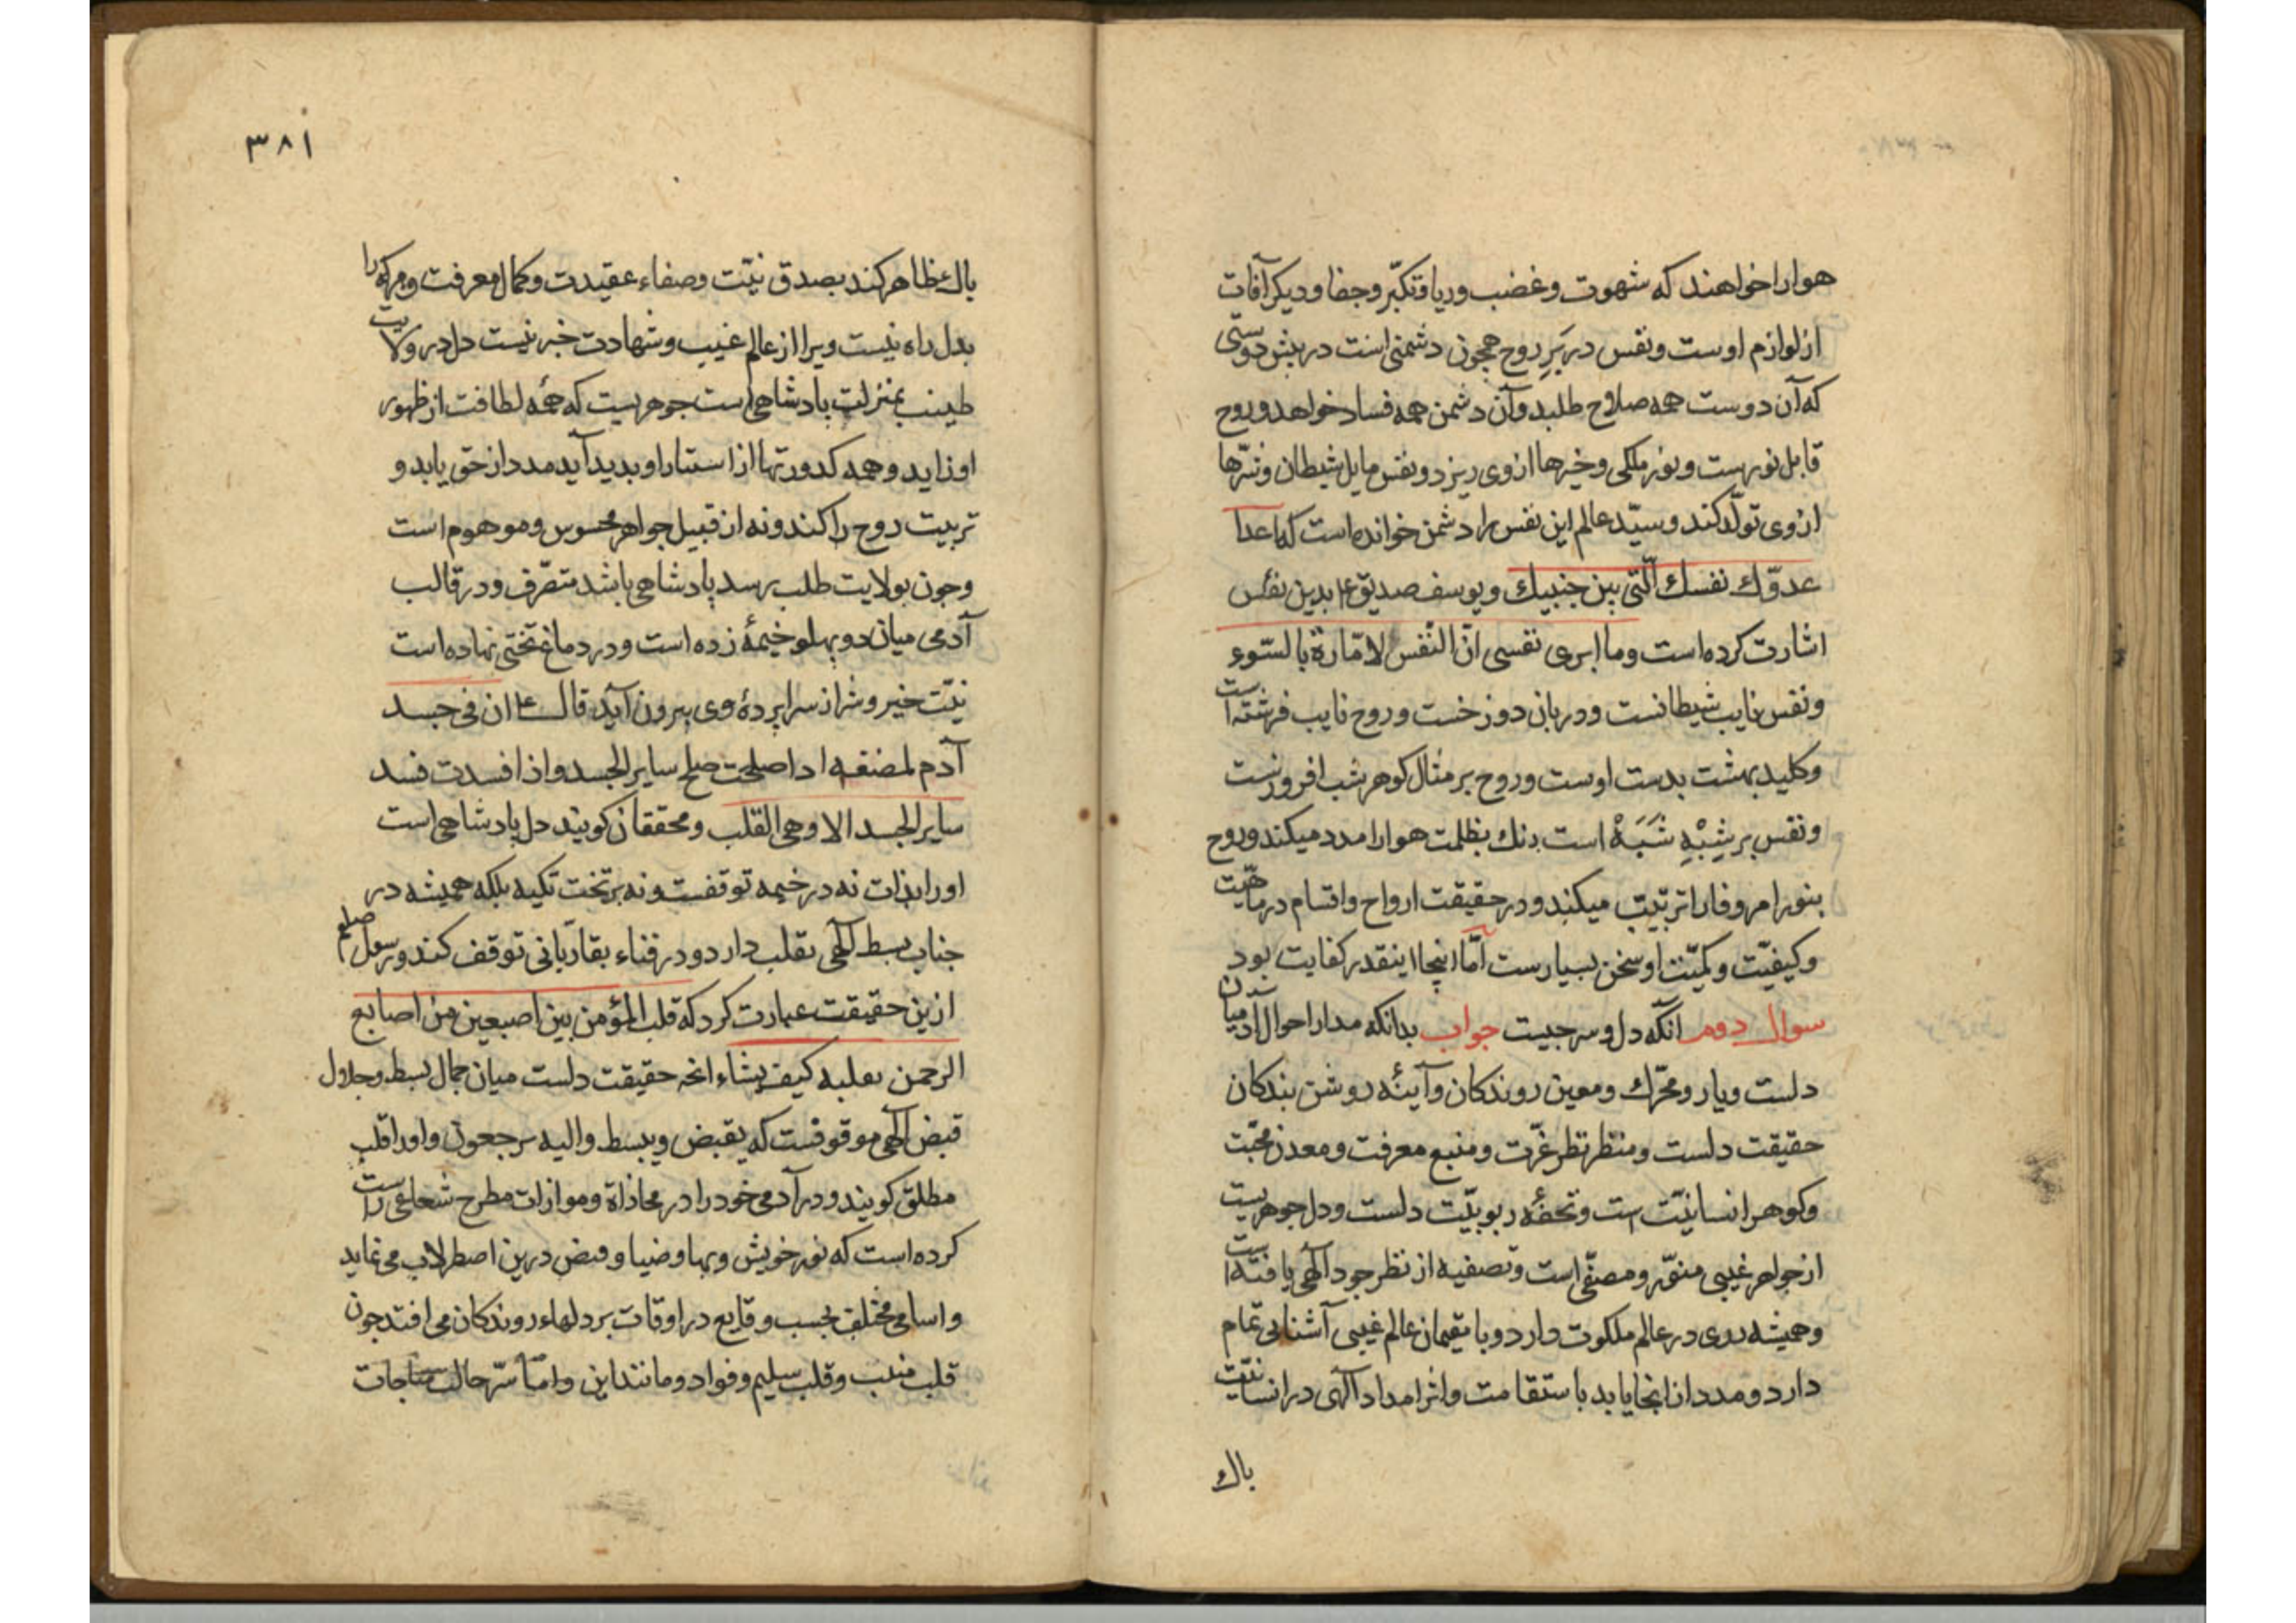 هوارا خواهند که شهوت و غضب و ریا و تکبّر و جفا و دیکر آفات
از لوازم اوست و نفس در بَرِ روح همچون دشمنی است در پیش دوستی
که آن دوست همه صلاح طلبد و آن دشمن همه فساد خواهد و روح
قابل نورست و نور ملکی و خیرها از وی ریزد و نفس مایل شیطان و شرّها
از وی تولّد کند و سیّد عالم این نفس را دشمن خوانده است که اعدا
عدوّك نفسك الّتی بین جنبیك و یوسف صدیق ع بدین نفس
اشارت کرده است وما ابری نفسی انّ النّفس لامّارة بالسّوء
و نفس نایب شیطانست و دربان دوزخست و روح نایب فرشته است
و کلید بهشت بدست اوست و روح بر مثال کوهر شب افروزست
و نفس بر شِبْهِ شَبَهْ است بظلمت هوارا مدد میکند و روح
بنور امر وفارا تربیت میکند و در حقیقت ارواح و اقسام در ماهیّت
و کیفیّت و کمیّت او سخن بسیارست امّا اینجا اینقدر کفایت بود
سوال دوم انکه دل و سر جیست جواب بدانکه مدار احوال ادمیان
دلست و یار و محرّك و معین روندکان و آینهٔ روشن بندکان
حقیقت دلست و منظر نظر عزّت و منبع معرفت و معدن محبّت
و کوهر انسانیّت است و تحفهٔ ربوبیّت دلست و دل جوهریست
از جواهر غیبی منوّر و مصفّی است و تصفیه از نظر جود آلهی یافته است
و همیشه در عالم ملکوت دارد و با مقیمان عالم غیبی آشنایی تمام
دارد و مدد از انجا یابد باستقامت و اثر امداد آلهی در انسانیّت
باك
۳۸۱
باك ظاهر کند بصدق نیّت و صفاء عقیدت و کمال معرفت و هرکه را
بدل راه نیست ویرا از عالم غیب و شهادت خبر نیست دل در ولایت
طینت بمنزلت بادشاهی است جوهریست که همهٔ لطافت از ظهور
او زاید و همه کدورتها از استتار او بدید آید مدد از حق یابد و
تربیت روح را کند و نه از قبیل جواهر محسوس و موهوم است
و جون بولایت طلب رسد بادشاهی باشد متصّرف و در قالب
آدمی میان دو بهلو خیمهٔ زده است و در دماغ تختی نهاده است
نیّت خیر و شر از سرابردهٔ وی بیرون آید قال ع ان فی جسد
آدم لمضغه اذا صلحت صلح سایر الجسد و اذا فسدت فسد
سایر الجسد الا وهی القّلب و محققان کویند دل بادشاهی است
اورا بذات نه در خیمه توقفست و نه بر تخت تکیه بلکه همیشه در
جناب بسط آلهی تقلب دارد و در فناء بقا ربّانی توقف کند و رسول صلعم
ازین حقیقت عبارت کرد که قلب المؤمن بین اصبعین من اصابع
الرحمن یقلبه کیف یشاء انچه حقیقت دلست میان جمال بسط و جلال
قبض آلهی موقوفست که یقبض و یبسط والیه ترجعون و اورا قلب
مطلق کویند و در آدمی خود را در محاذاة و موازات مطرح شعاعی راست
کرده است که نور خویش و بها و ضیا و فیض درین اصطرلاب می نماید
و اسامی مختلف بحسب وقایع در اوقات بر دلهاء روندکان می افتد جون
قلب منیب و قلب سلیم و فواد و مانند این و امّا سرّ حالت مناجات